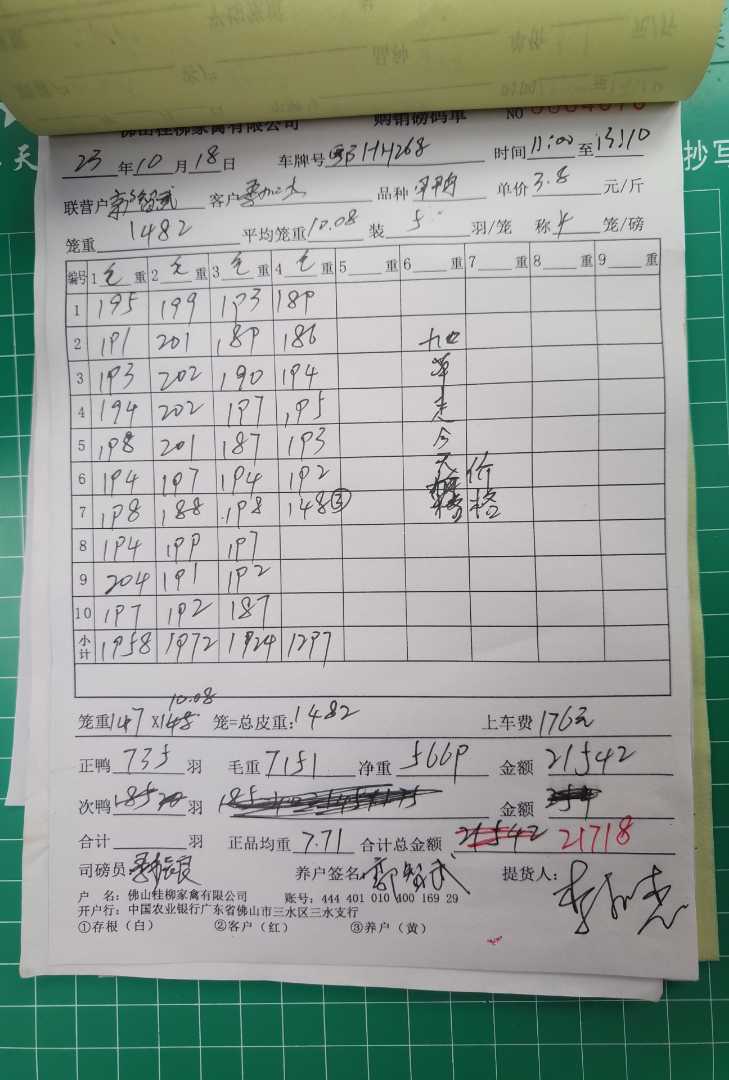 佛山桂柳家禽有限公司 购销磅码单 NO
23年10月18日 车牌号 HH268 时间11:00至13:10
联营户 客户 品种 单价3.8元/斤
笼重1482 平均笼重10.08 装5羽/笼 称4笼/磅
编号 1毛重 2毛重 3毛重 4毛重 5重 6重 7重 8重 9重
1 195 199 193 189
2 191 201 189 186
3 193 202 190 194
4 194 202 197 195
5 198 201 187 193
6 194 197 194 192
7 198 188 198 148③
8 194 199 197
9 204 191 192
10 197 192 187
小计 1958 1972 1924 1297
单
走
今
天
价
格
10.08
笼重147X148笼=总皮重:1482 上车费176元
正鸭735羽 毛重7151 净重5669 金额21542
次鸭羽 金额
合计羽 正品均重7.71 合计总金额21542 21718
司磅员 养户签名: 提货人:
户 名:佛山桂柳家禽有限公司 账号:444 401 010 400 169 29
开户行:中国农业银行广东省佛山市三水区三水支行
①存根(白) ②客户(红) ③养户(黄)
天
抄写